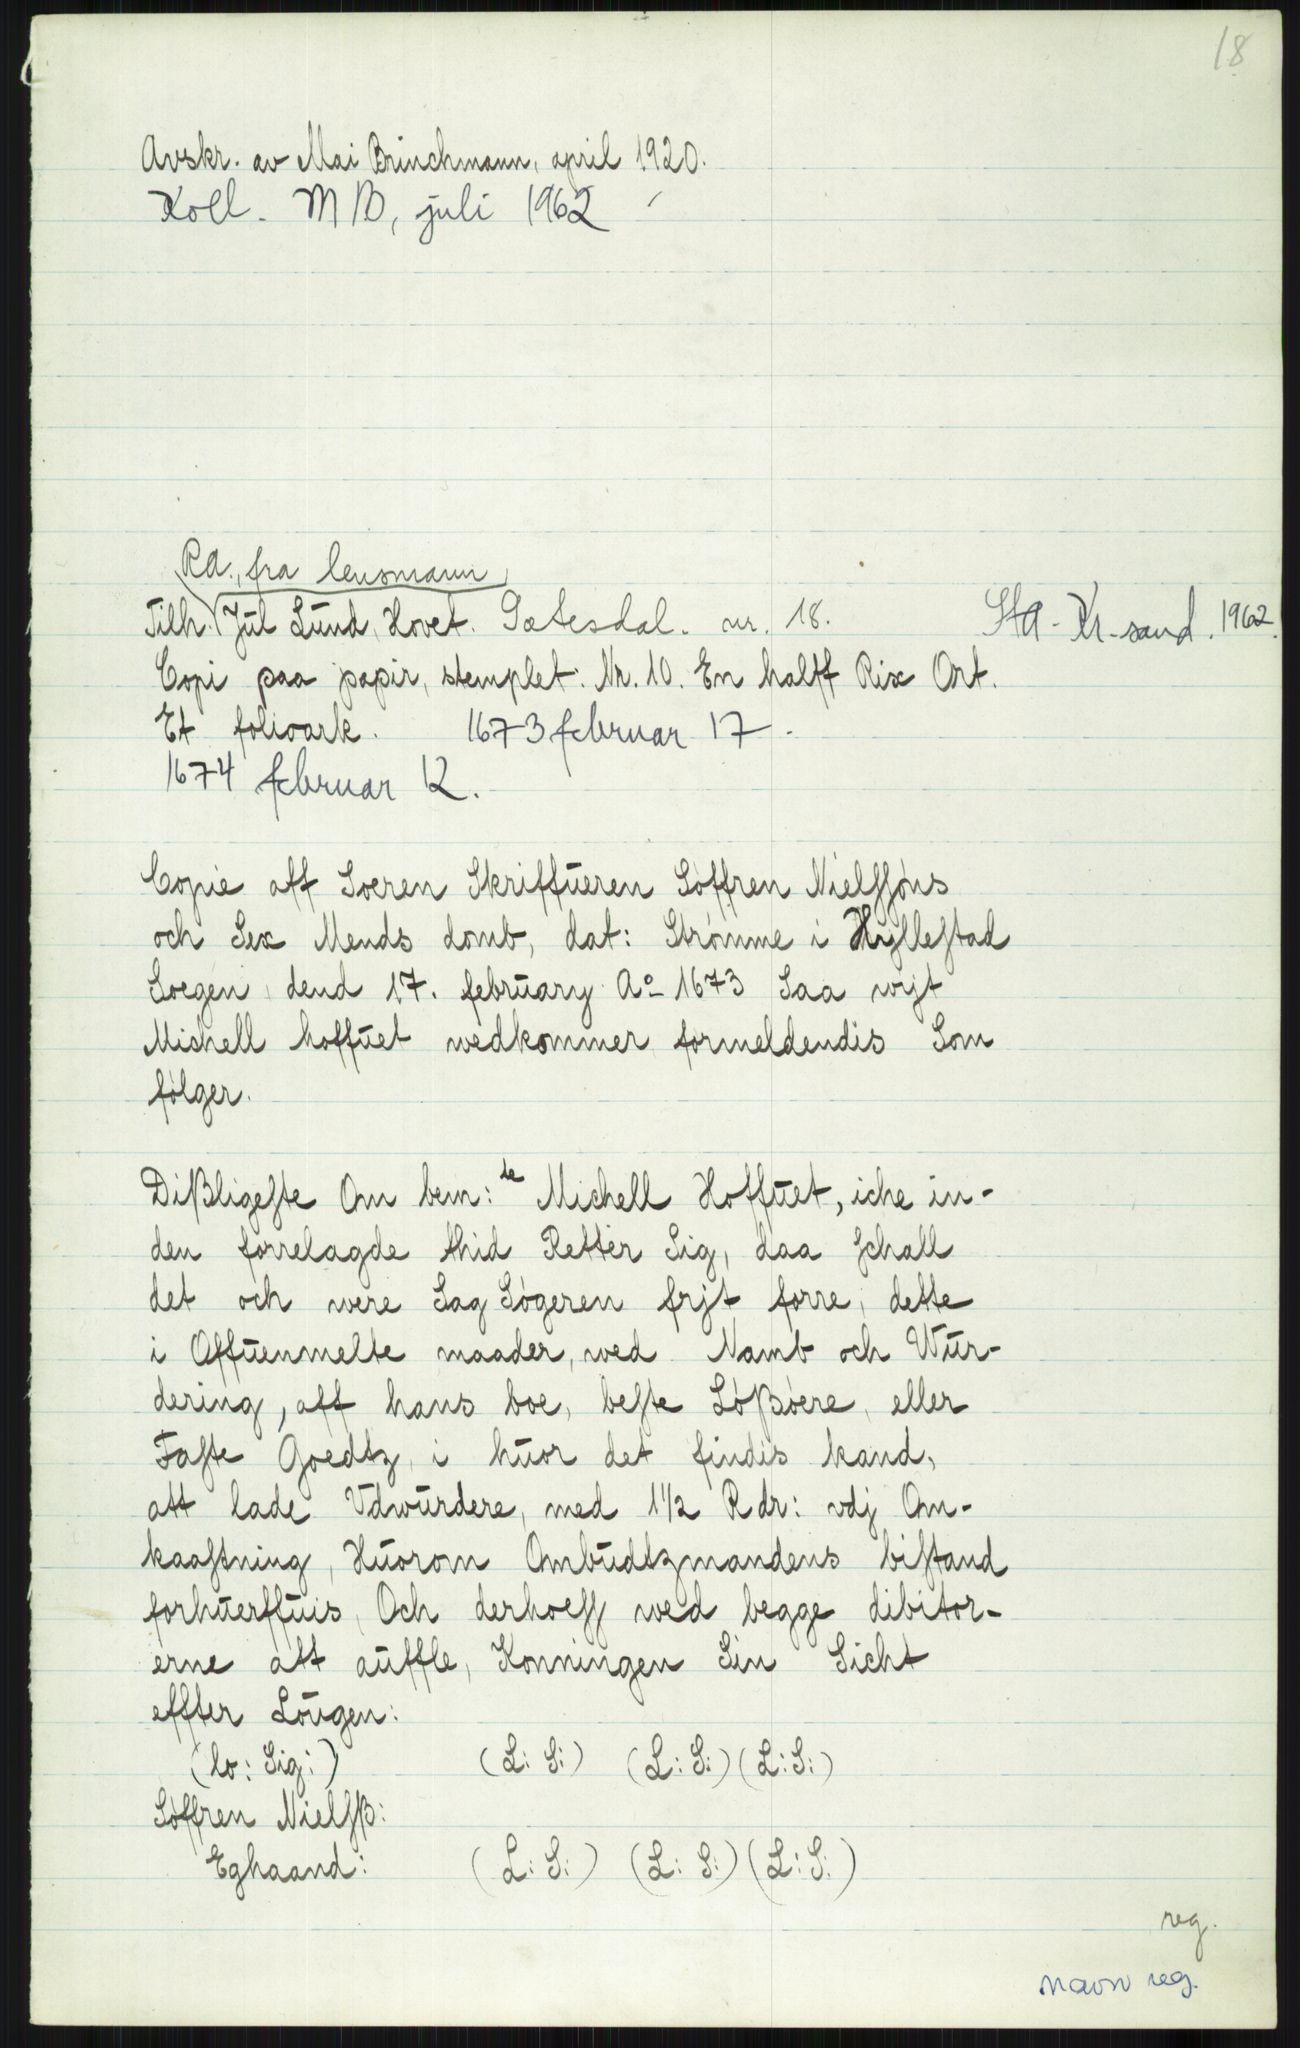 18
Avskr. av Mai Brinchmann, april 1920.
Koll. MB, juli 1962
RA., fra lensmann
Tilh. Jul Lund, Hovet. Sætesdal. nr. 18. Sta - Kr-sand. 1962.
Copi paa papir, stemplet: Nr. 10. En halff Rix Ort.
Et folioark. 1673 februar 17.
1674 februar 12.
Copie aff Soeren Skriffueren Søffren Nielssøns
och Sex Mends domb, dat: Strømme i Hylleftad
Soegen, dend 17. february Ao 1673 Saa wijt
Michell hoffuet wedkommer formeldendis Som
følger.
Dißligeste Om bem:te Michell Hoffuet, iche in-
den forrelagde thid Retter Sig, daa schall
det och were Sag Søgeren frjt forre, dette
i Offuenmelte maader, wed Namb och Wur-
dering, aff hans boe, beste Løßøere, eller
Faste Goedtz, i huor det findis kand,
att lade Vdwurdere, med 1 1/2 Rdr: vdj Om-
kaastning, Huorom Ombudtzmandens bistand
forhuerffuis, Och derhoess wed begge dibitor-
erne att auffle, Konningen Sin Sicht
effter Lougen:
(lo: Sig:) (L: S:) (L: S:) (L: S:)
Søffren Nielsß:
Eghaand: (L: S:) (L: S:) (L: S:)
reg.
navn reg.